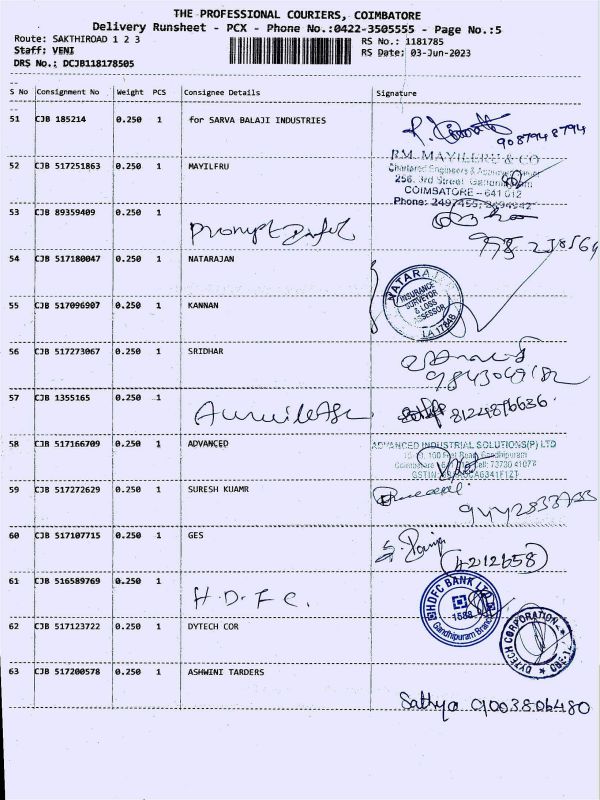 THE PROFESSIONAL COURIERS, COIMBATORE
Delivery Runsheet - PCX - Phone No.:0422-3505555 - Page No.:5
Route: SAKTHIROAD 1 2 3
RS No.: 1181785
Staff: VENI
RS Date: 03-Jun-2023
DRS No.: DCJB118178505
S No Consignment No Weight PCS Consignee Details Signature
51 CJB 185214 0.250 1 for SARVA BALAJI INDUSTRIES
9087948794
52 CJB 517251863 0.250 1 MAYILFRU
P.M. MAYILERU & CO
Chartered Engineers &
256, 3rd Street
COIMBATORE - 641 012
Phone:
53 CJB 89359409 0.250 1 Prompt
54 CJB 517180047 0.250 1 NATARAJAN
NATARAJ
INSURANCE
SURVEYOR
& LOSS
ASSESSOR
55 CJB 517096907 0.250 1 KANNAN
56 CJB 517273067 0.250 1 SRIDHAR
57 CJB 1355165 0.250 1
58 CJB 517166709 0.250 1 ADVANCED
ADVANCED INDUSTRIAL SOLUTIONS(P) LTD
59 CJB 517272629 0.250 1 SURESH KUAMR
9442833755
60 CJB 517107715 0.250 1 GES
(4212658)
61 CJB 516589769 0.250 1 H.D.F.C.
HDFC BANK LTD
1588
Gandhipuram Branch
62 CJB 517123722 0.250 1 DYTECH COR
DYTECH CORPORATION
63 CJB 517200578 0.250 1 ASHWINI TARDERS
Sathya 9003806480